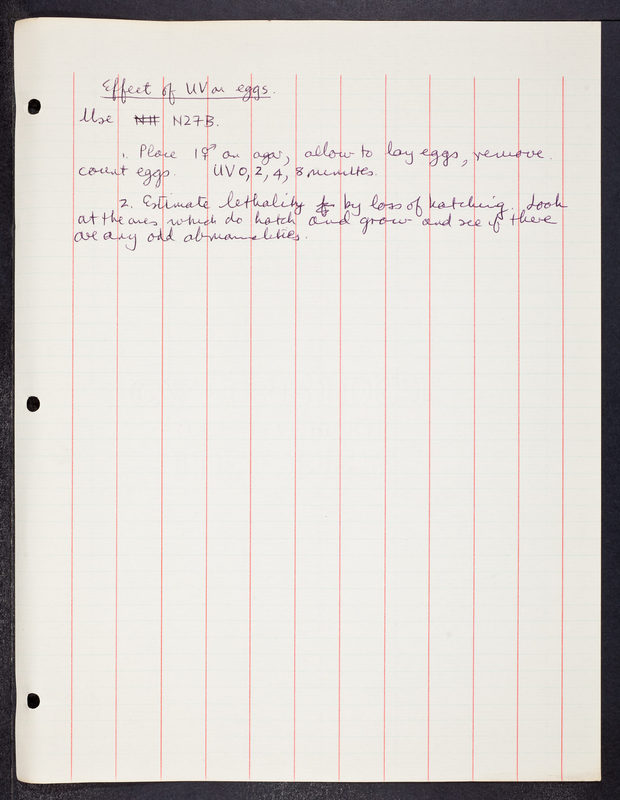 Effect of UV on eggs.
Use N27B.
1. Place 1⚥ on agar, allow to lay eggs, remove.
count eggs. UV 0, 2, 4, 8 minutes.
2. Estimate lethality by loss of hatching. Look
at the ones which do hatch and grow and see if there
are any odd abnormalities.